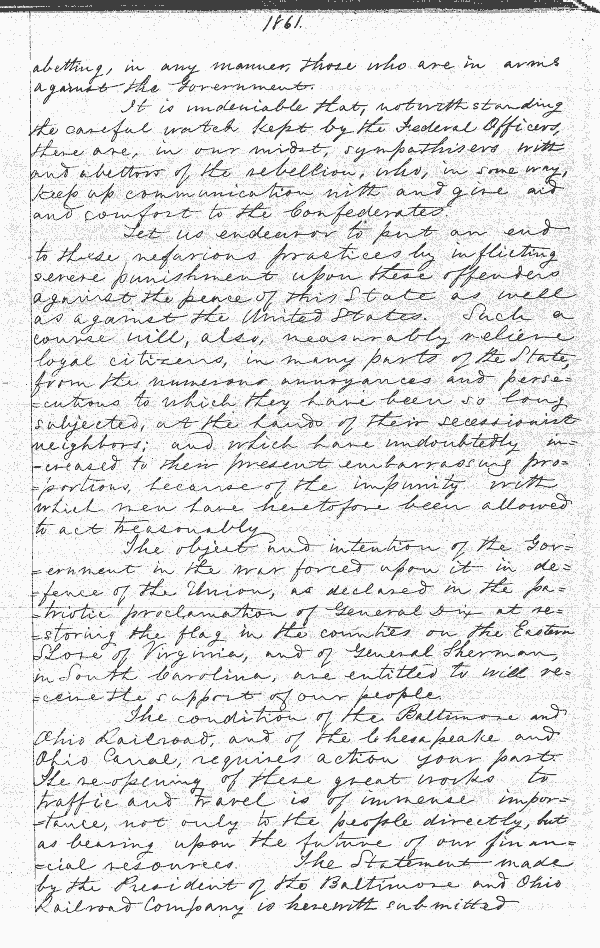 1861.
abetting, in any manner, those who are in arms
against the Government.
It is undeniable that, notwithstanding
the careful watch kept by the Federal Officers,
there are, in our midst, sympathisers with
and abettors of the rebellion, who, in some way,
keep up communication with and give aid
and comfort to the Confederates.
Let us endeavor to put an end
to these nefarious practices by inflicting
severe punishment upon these offenders
against the peace of this State as well
as against the United States. Such a
course will, also, measurably relieve
loyal citizens, in many parts of the State,
from the numerous annoyances and perse=
=cutions to which they have been so long
subjected, at the hands of their secessionist
neighbors; and which have undoubtedly in=
=creased to their present embarrassing pro=
=portions, because of the impunity with
which men have heretofore been allowed
to act treasonably
The object and intention of the Gov=
=ernment in the war forced upon it in de=
=fence of the Union, as declared in the pa=
=triotic proclamation of General Dix at re=
=storing the flag in the counties on the Eastern
Shore of Virginia, and of General Sherman,
in South Carolina, are entitled to will re=
=ceive the support of our people.
The condition of the Baltimore and
Ohio Railroad, and of the Chesapeake and
Ohio Canal, requires action your part.
The re-opening of these great works to
traffic and travel is of immense impor=
=tance, not only to the people directly, but
as bearing upon the future of our finan=
=cial resources. The Statement made
by the President of the Baltimore and Ohio
Railroad Company is herewith submitted